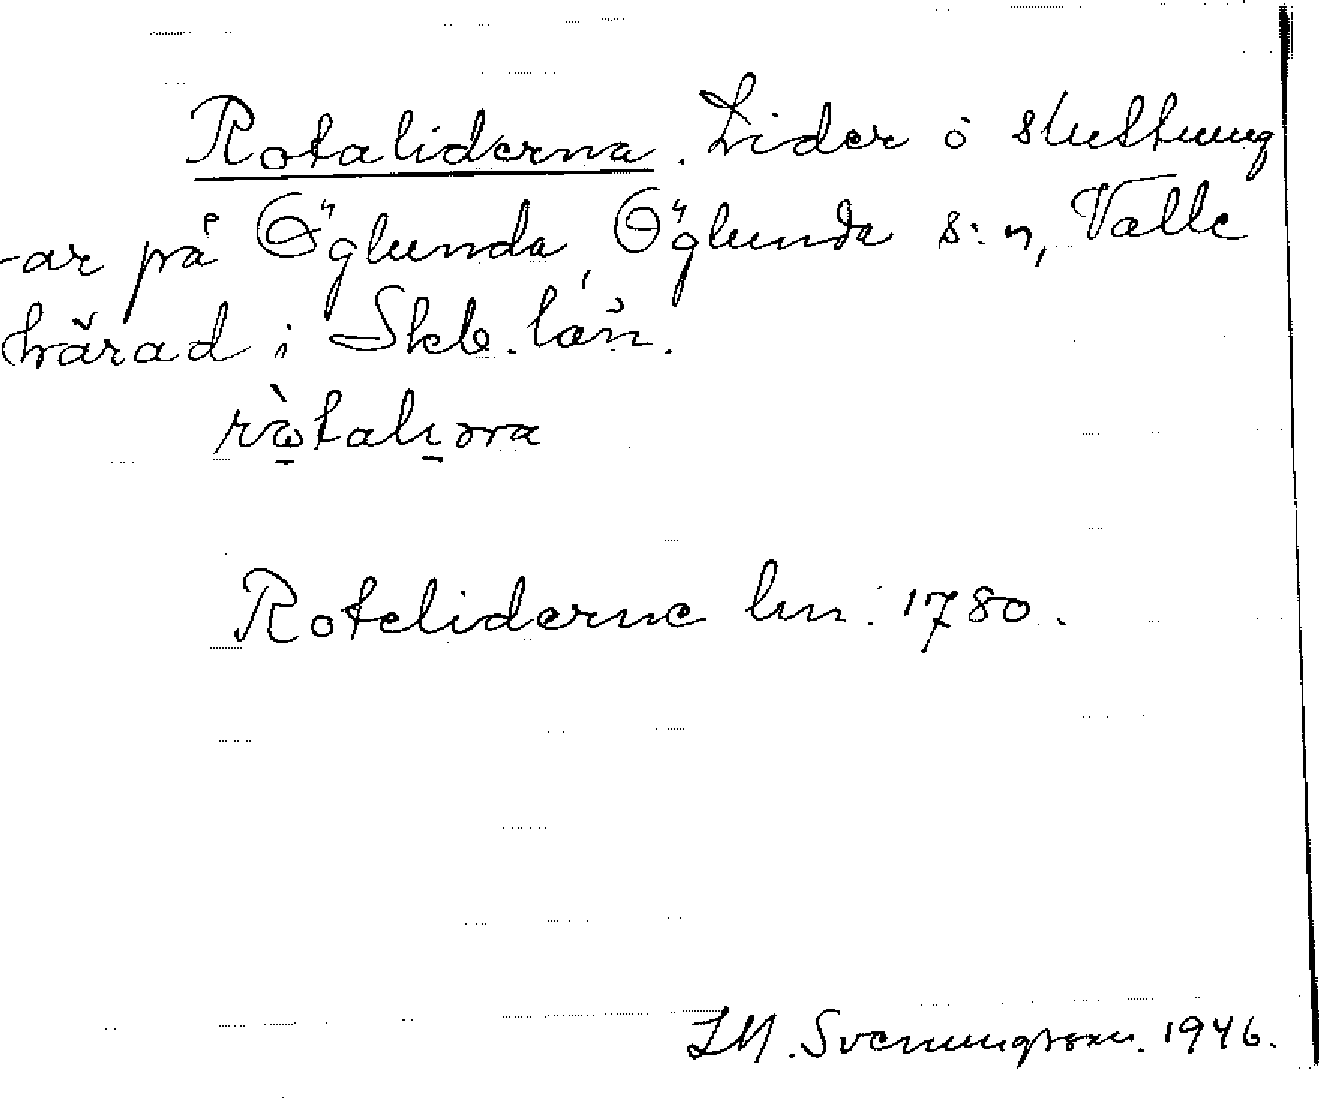 Rotaliderna. Lider o sluttning
-ar på Öglunda, Öglunda s:n, Valle
härad i Skb. län.
ròtaliɔra
Roteliderne lm: 1780.
S. Svenungsson. 1946.